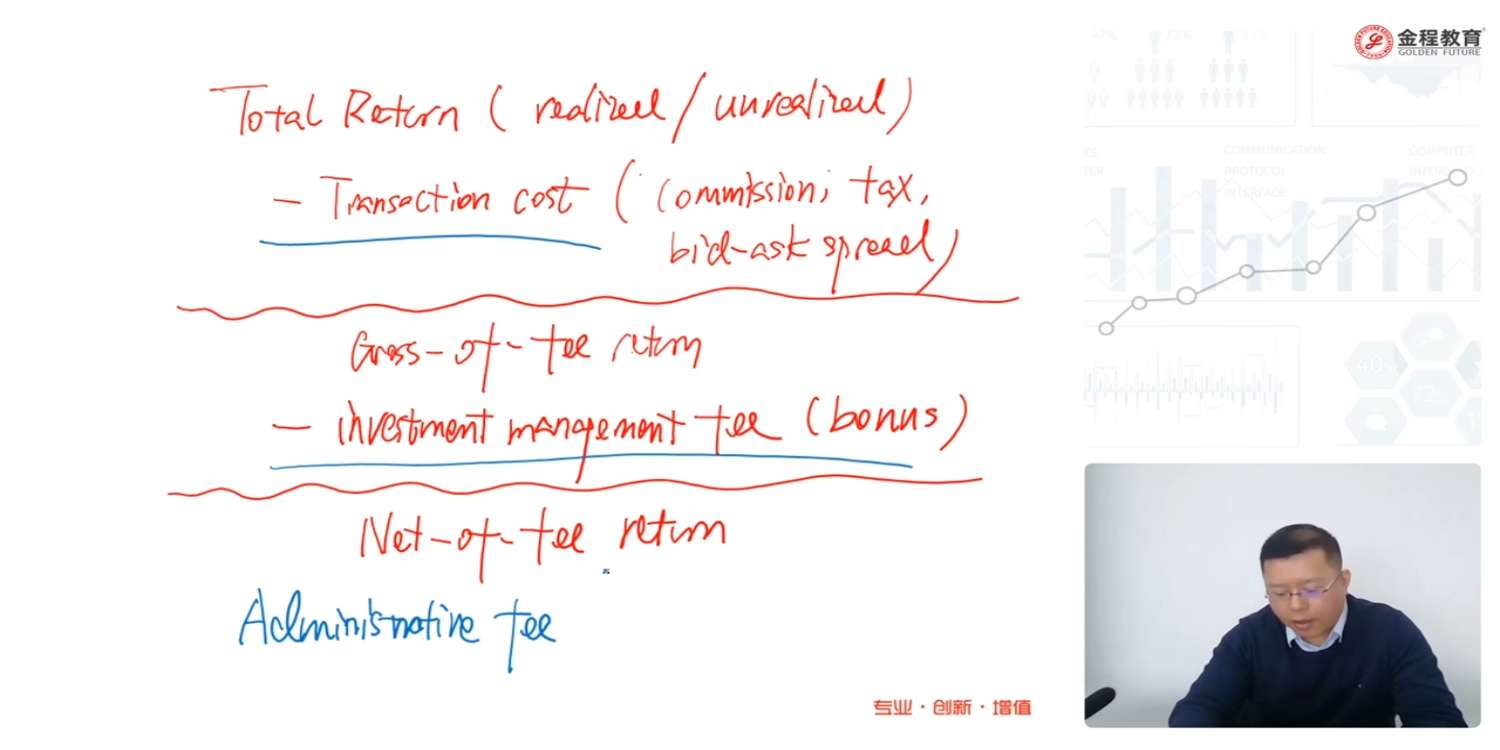 金程教育
GOLDEN FUTURE
Total Return ( realized / unrealized )
- Transaction cost ( commission, tax,
bid-ask spread )
Gross-of-fee return
- investment management fee (bonus)
Net-of-fee return
Administrative fee
47%
72%
COMMUNICATION
PROTOCOL
INTERFACE
COMPUTER
40%
专业·创新·增值